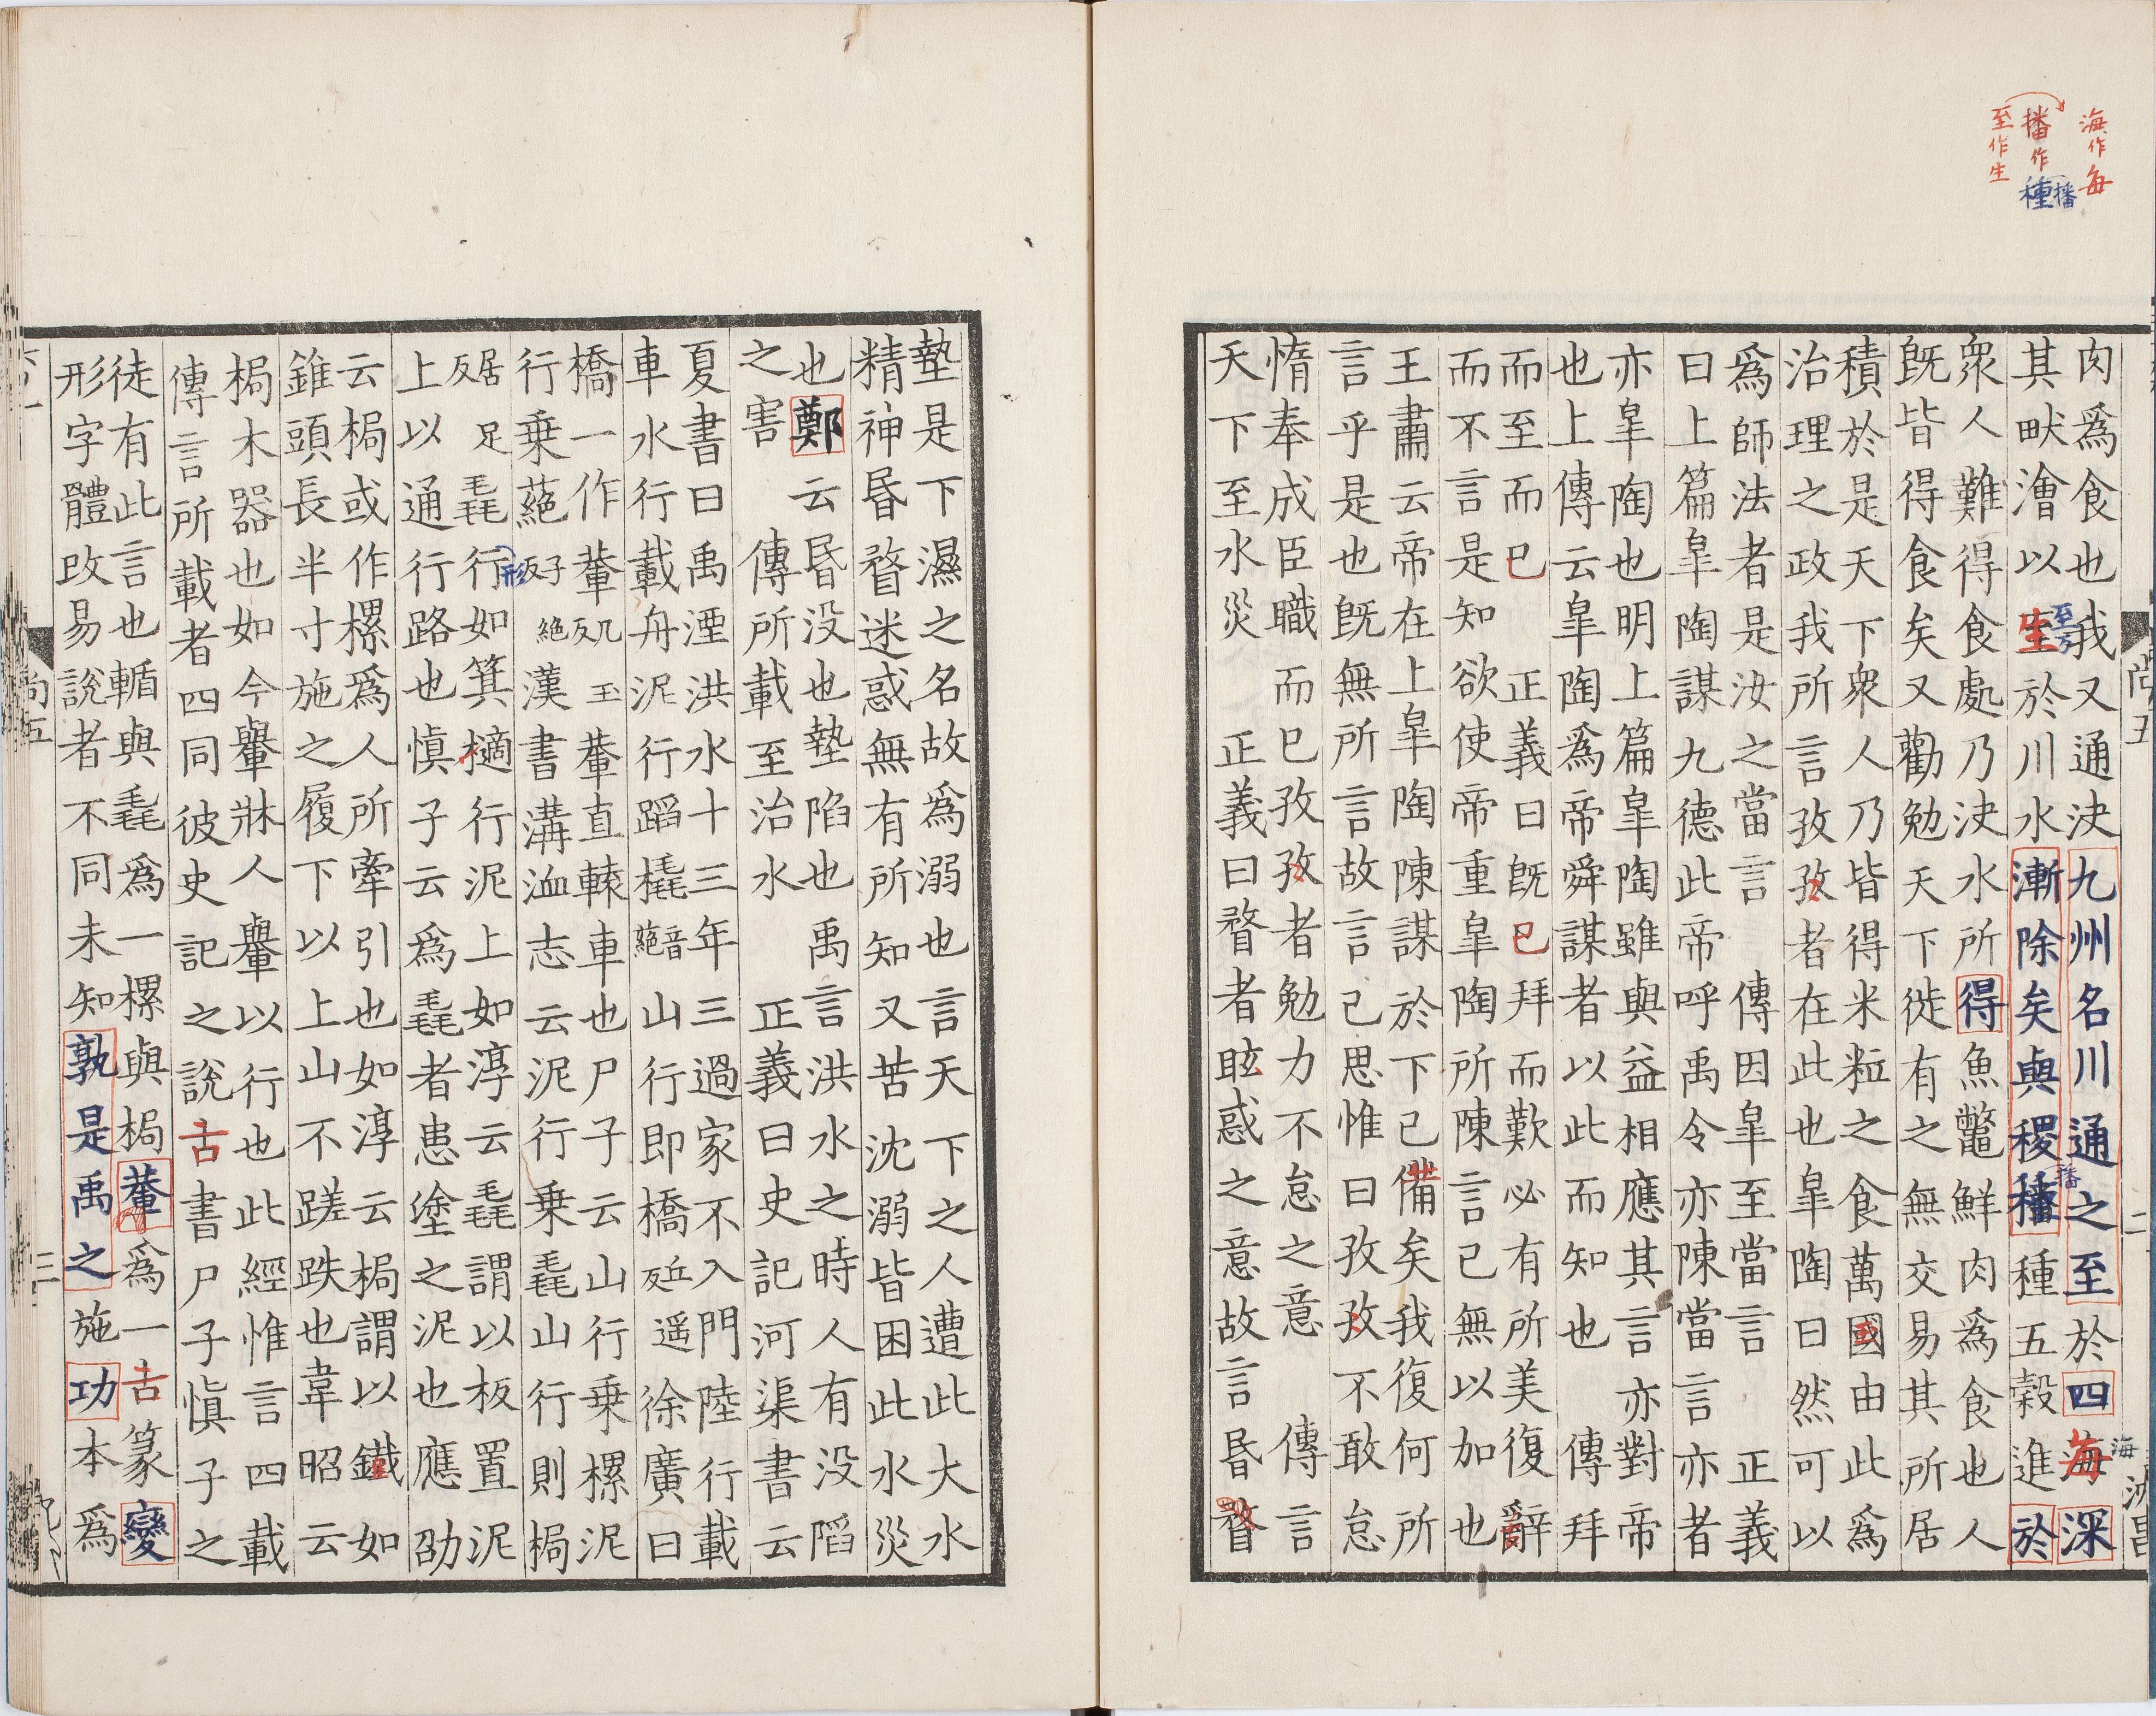 海作每
播作種播
至作生
肉爲食也我又通決九州名川通之至於四海深
其畎澮以至於川水漸除矣與稷種種五穀進於
衆人難得食處乃決水所得魚鼈鮮肉爲食也人
既皆得食矣又勸勉天下徙有之無交易其所居
積於是天下衆人乃皆得米粒之食萬國由此爲
治理之政我所言孜孜者在此也皐陶曰然可以
爲師法者是汝之當言 傳因皐至當言 正義
曰上篇皐陶謀九德此帝呼禹令亦陳當言亦者
亦皐陶也明上篇皐陶雖與益相應其言亦對帝
也上傳云皐陶爲帝舜謀者以此而知也 傳拜
而至而已 正義曰既已拜而歎必有所美復辭
而不言是知欲使帝重皐陶所陳言己無以加也
王肅云帝在上皐陶陳謀於下已備矣我復何所
言乎是也既無所言故言己思惟曰孜孜不敢怠
惰奉成臣職而已孜孜者勉力不怠之意 傳言
天下至水災 正義曰瞀者眩惑之意故言昬瞀
墊是下濕之名故爲溺也言天下之人遭此大水
精神昬瞀迷惑無有所知又苦沈溺皆困此水災
也鄭云昬没也墊陷也禹言洪水之時人有没䧟
之害 傳所載至治水 正義曰史記河渠書云
夏書曰禹湮洪水十三年三過家不入門陸行載
車水行載舟泥行蹈橇音蕝山行即橋丘遥反徐廣曰
橋一作輂几玉反輂直轅車也尸子云山行乗樏泥
行乗蕝子絶反漢書溝洫志云泥行乗毳山行則梮
居足反毳行如箕擿行泥上如淳云毳謂以板置泥
上以通行路也慎子云爲毳者患塗之泥也應劭
云梮或作樏爲人所牽引也如淳云梮謂以鐵如
錐頭長半寸施之履下以上山不蹉跌也韋昭云
梮木器也如今轝牀人轝以行也此經惟言四載
傳言所載者四同彼史記之說古書尸子慎子之
徒有此言也輴與毳爲一樏與梮輂爲一古篆變
形字體改易說者不同未知孰是禹之施功本爲